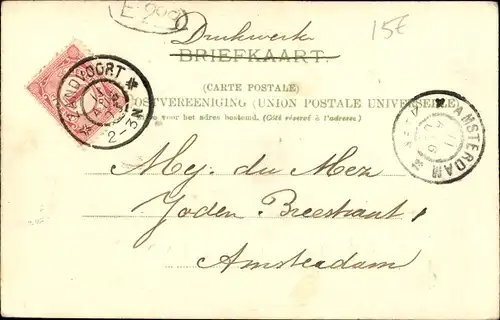 E 229
15€
Drukwerk
BRIEFKAART.
(CARTE POSTALE)
POSTVEREENIGING (UNION POSTALE UNIVERSELLE)
voor het adres bestemd. (Côté réservé à l'adresse.)
ZANDVOORT
2-3N
AMSTERDAM
Mej. du Mez
Joden Breestraat 1
Amsterdam